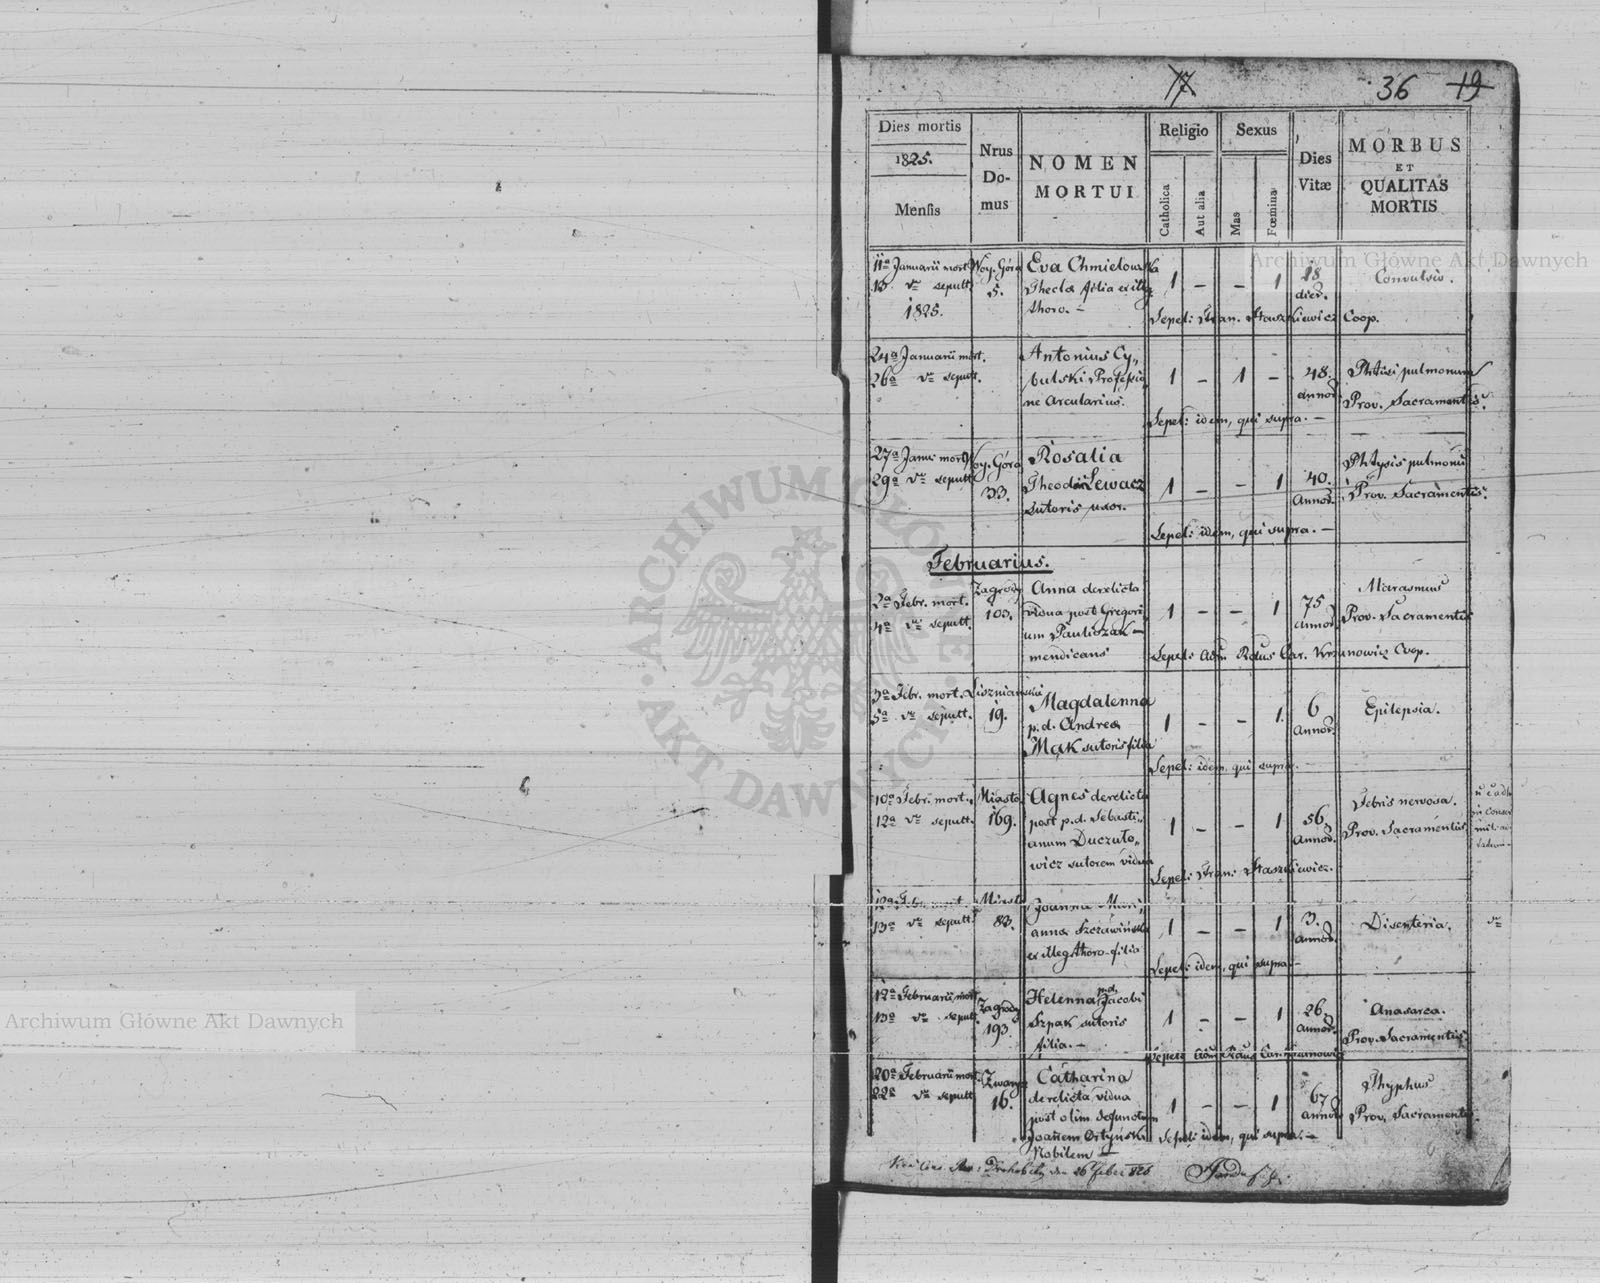 17 36 19
Dies mortis
1825.
Mensis
Nrus
Do-
mus
NOMEN
MORTUI
Religio
Catholica
Aut alia
Sexus
Mas
Fœmina
Dies
Vitæ
MORBUS
ET
QUALITAS
MORTIS
11a Januarii mort.
13 do sepult.
1825.
Woy. Góra
5.
Eva Chmielowska
Thecla filia ex illeg
thoro. –
1 – – 1
18
dier.
Convulsio.
Sepel: Fran. Staszkiewicz Coop.
24a Januarii mort.
26a do sepult.
Antonius Cy-
bulski Professio
ne Arcularius.
1 – 1 –
48.
annor.
Phtisi pulmonum
Prov. Sacramentis.
Sepel: idem, qui supra. –
27a Janu: mort.
29a do sepult.
Woy. Góra
33.
Rosalia
Lewacz
sutoris uxor.
1 – – 1
40.
Annor.
Phtysis pulmonu
Prov. Sacramentis.
Sepel: idem, qui supra. –
Februarius.
2a Febr. mort.
4a do sepult.
Zagrody
103.
Anna derelicta
vidua post Gregori
um Pauliszak –
mendicans
1 – – 1
75
annor.
Marasmus
Prov. Sacramentis
Sepel: Coop.
3a Febr. mort.
5a do sepult.
19.
Magdalenna
p.d. Andrea
Mąk sutoris filia
1 – – 1.
6
Annor.
Epilepsia.
Sepel: idem, qui supra.
10a Febr. mort.
12a do sepult.
Miasto
169.
Agnes derelicta
post p.d. Sebasti-
anum Duczuło-
wicz sutorem vidua
1 – – 1
56
Annor.
Febris nervosa.
Prov. Sacramentis
Sepel: Fran: Staszkiewicz.
12a Febr. mort.
13a do sepult.
Miasto
83.
Joanna Mari-
anna Szczawińska
ex illeg. thoro filia
1 – – 1
3.
annor.
Disenteria.
do
Sepel: idem, qui supra –
12a Februarii mort
13a do sepult.
Zagrody
193
Helenna p.d. Jacobi
Szpak sutoris
filia. –
1 – – 1
26.
annor.
Anasarca.
Prov. Sacramentis
20a Februarii mort.
22a do sepult
16.
Catharina
derelicta vidua
post olim defunctum
Joañem Ortyński
Nobilem
1 – – 1
67
annor.
Thyphus
Prov. Sacramentis
Sepel: idem, qui supra. –
Archiwum Główne Akt Dawnych
Archiwum Główne Akt Dawnych
ARCHIWUM GŁÓWNE
AKT DAWNYCH